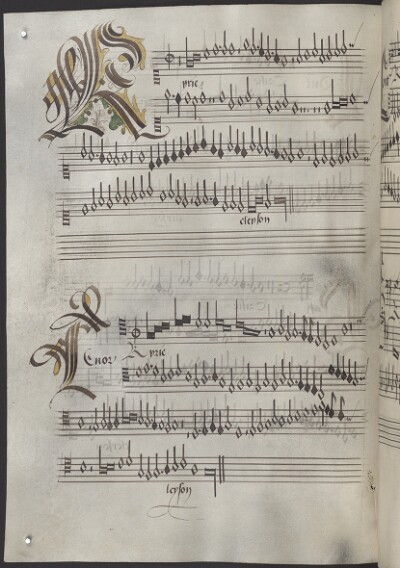 K
yrie
eleyson
Tenor
Kyrie
leyson